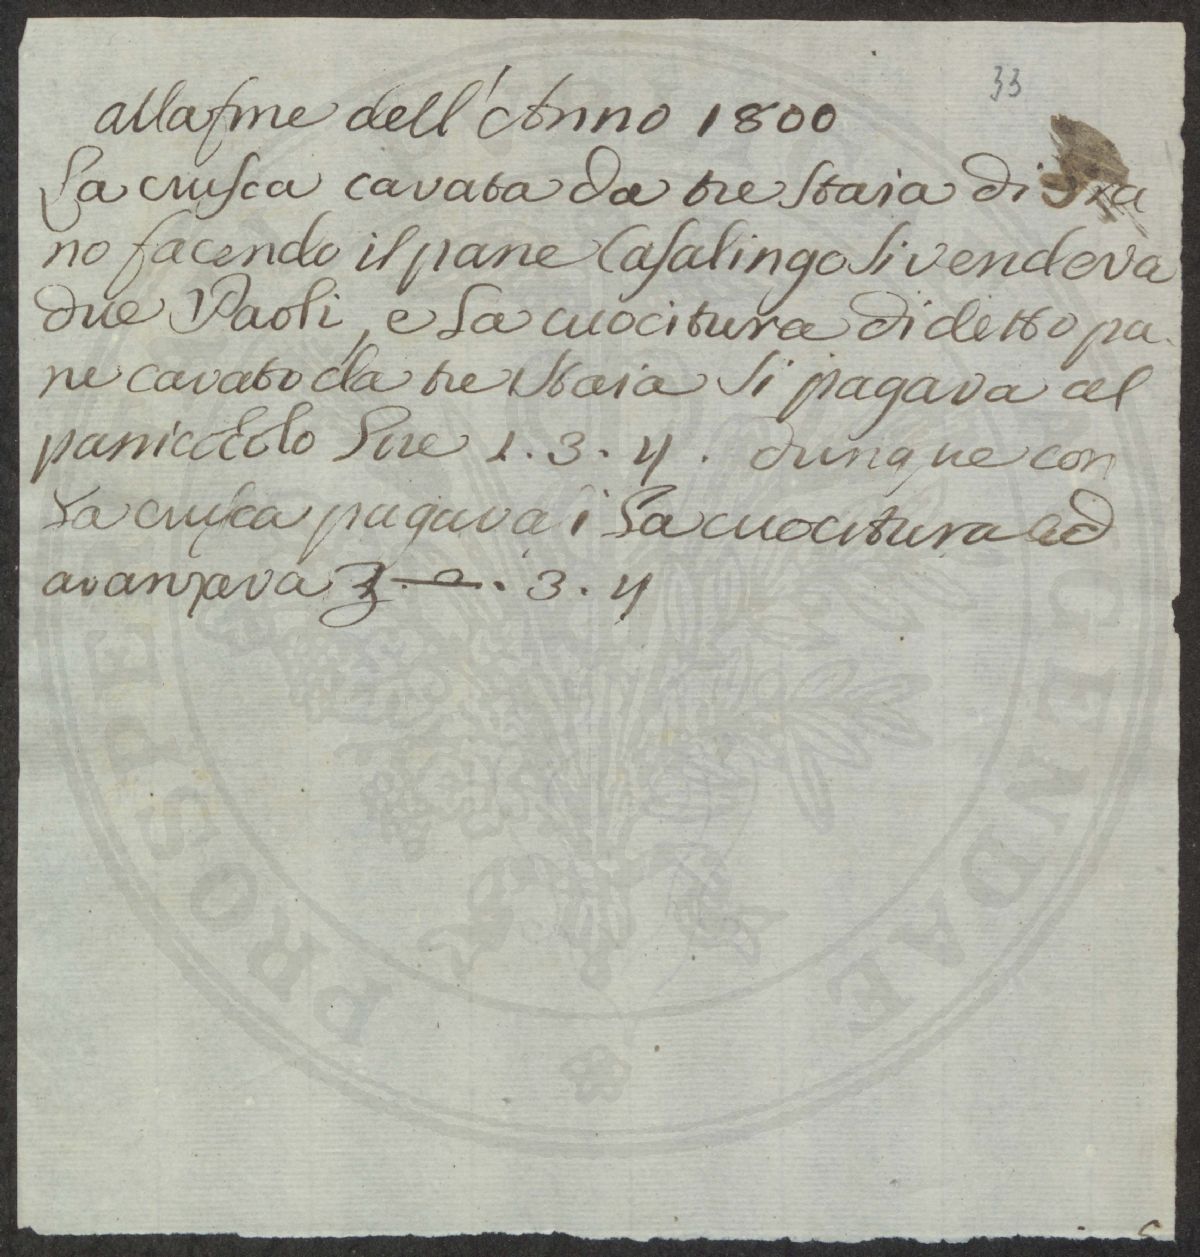 33
alla fine dell'Anno 1800
La crusca cavata da tre Staia di Gra
no facendo il pane Casalingo Si vendeva
due Paoli, e La cuocitura di detto pa
ne cavato da tre Staia Si pagava al
panicciolo Lire 1.3.4. dunque con
La crusca pagavasi La cuocitura ed
avanzava 3.4